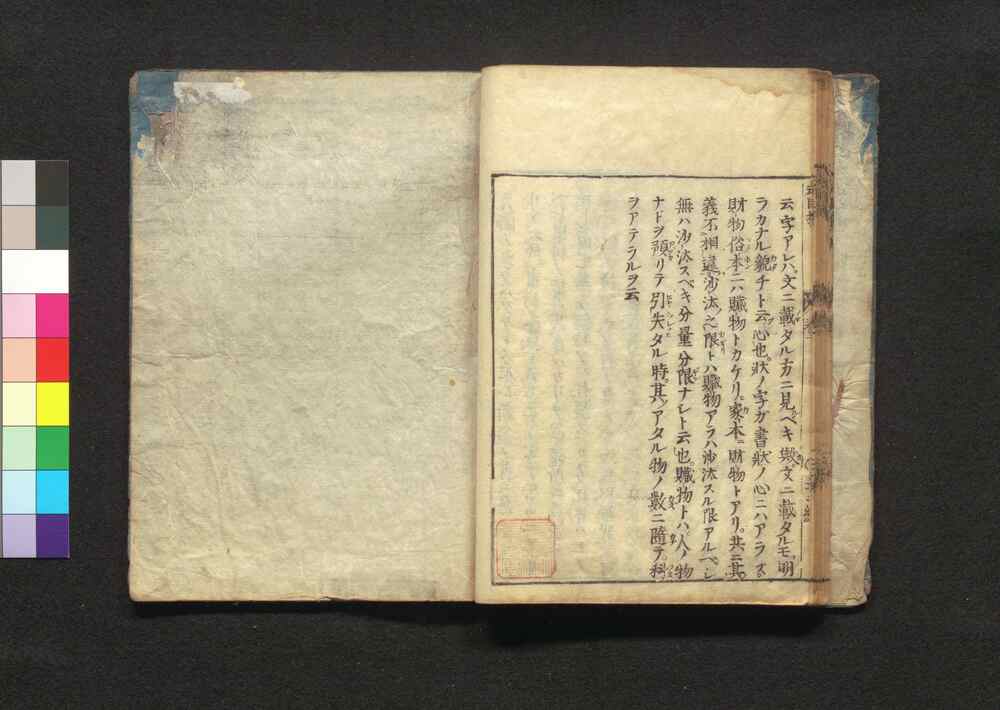 云字アレハ文ニ載タル方ニ見ベキ歟文ニ載タルモ明
ラカナル貌チト云心也状ノ字ガ書状ノ心ニハアラズ
財物俗本ニハ贓物トカケリ家本ニ財物トアリ共ニ其
義不相違沙汰之限トハ贓物アラハ沙汰スル限アルベシ
無ハ沙汰スベキ分量分限ナシト云也贓物トハ人ノ物
ナドヲ預リテ引失タル時其アタル物ノ數ニ隨テ科
ヲアテラルヲ云